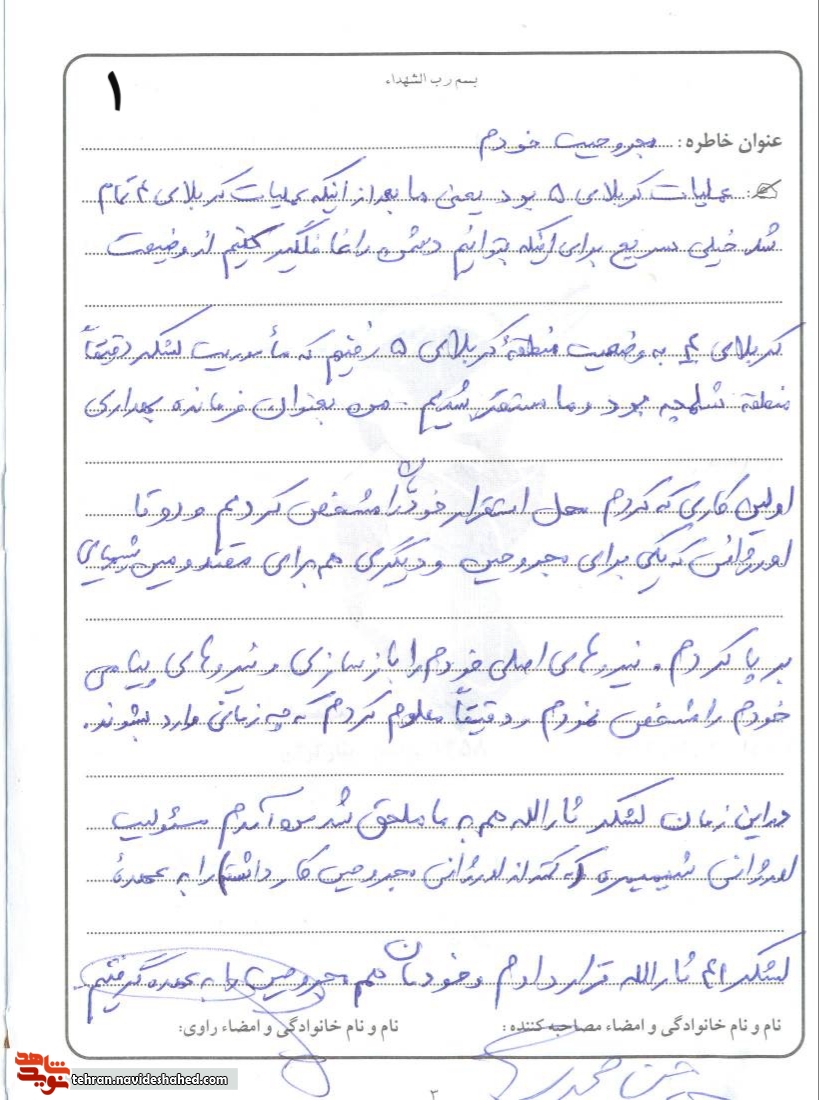 بسم رب الشهداء
۱
عنوان خاطره: مجروحیت خودم
عملیات کربلای ۵ بود یعنی ما بعد از اینکه عملیات کربلای ۴ تمام
شد خیلی سریع برای اینکه بتوانیم دشمن را غافلگیر کنیم از وضعیت
کربلای ۴ به وضعیت منطقهٔ کربلای ۵ رفتیم که مأموریت لشکر دقیقاً
منطقه شلمچه بود و ما مستقر شدیم. من بعنوان فرمانده بهداری
اولین کاری که کردم محل استقرار خودمان را مشخص کردیم و دو تا
اورژانس که یکی برای مجروحین و دیگری هم برای مصدومین شیمیایی
برپا کردم. نیروهای اصلی خودم را بازسازی و نیروهای
خودم را مشخص نمودم و دقیقاً معلوم کردم که چه زمانی وارد بشوند.
در این زمان لشکر ثارالله هم به ما ملحق شد من آمدم مسئولیت
اورژانس ش.م.ر (که کمتر از اورژانس مجروحین کار داشت) را به عهدهٔ
لشکر ۴۱ ثارالله قرار دادم و خودمان هم مجروحین را به عهده گرفتیم.
نام و نام خانوادگی و امضاء مصاحبه کننده:
نام و نام خانوادگی و امضاء راوی:
۳
نوید شاهد
tehran.navideshahed.com